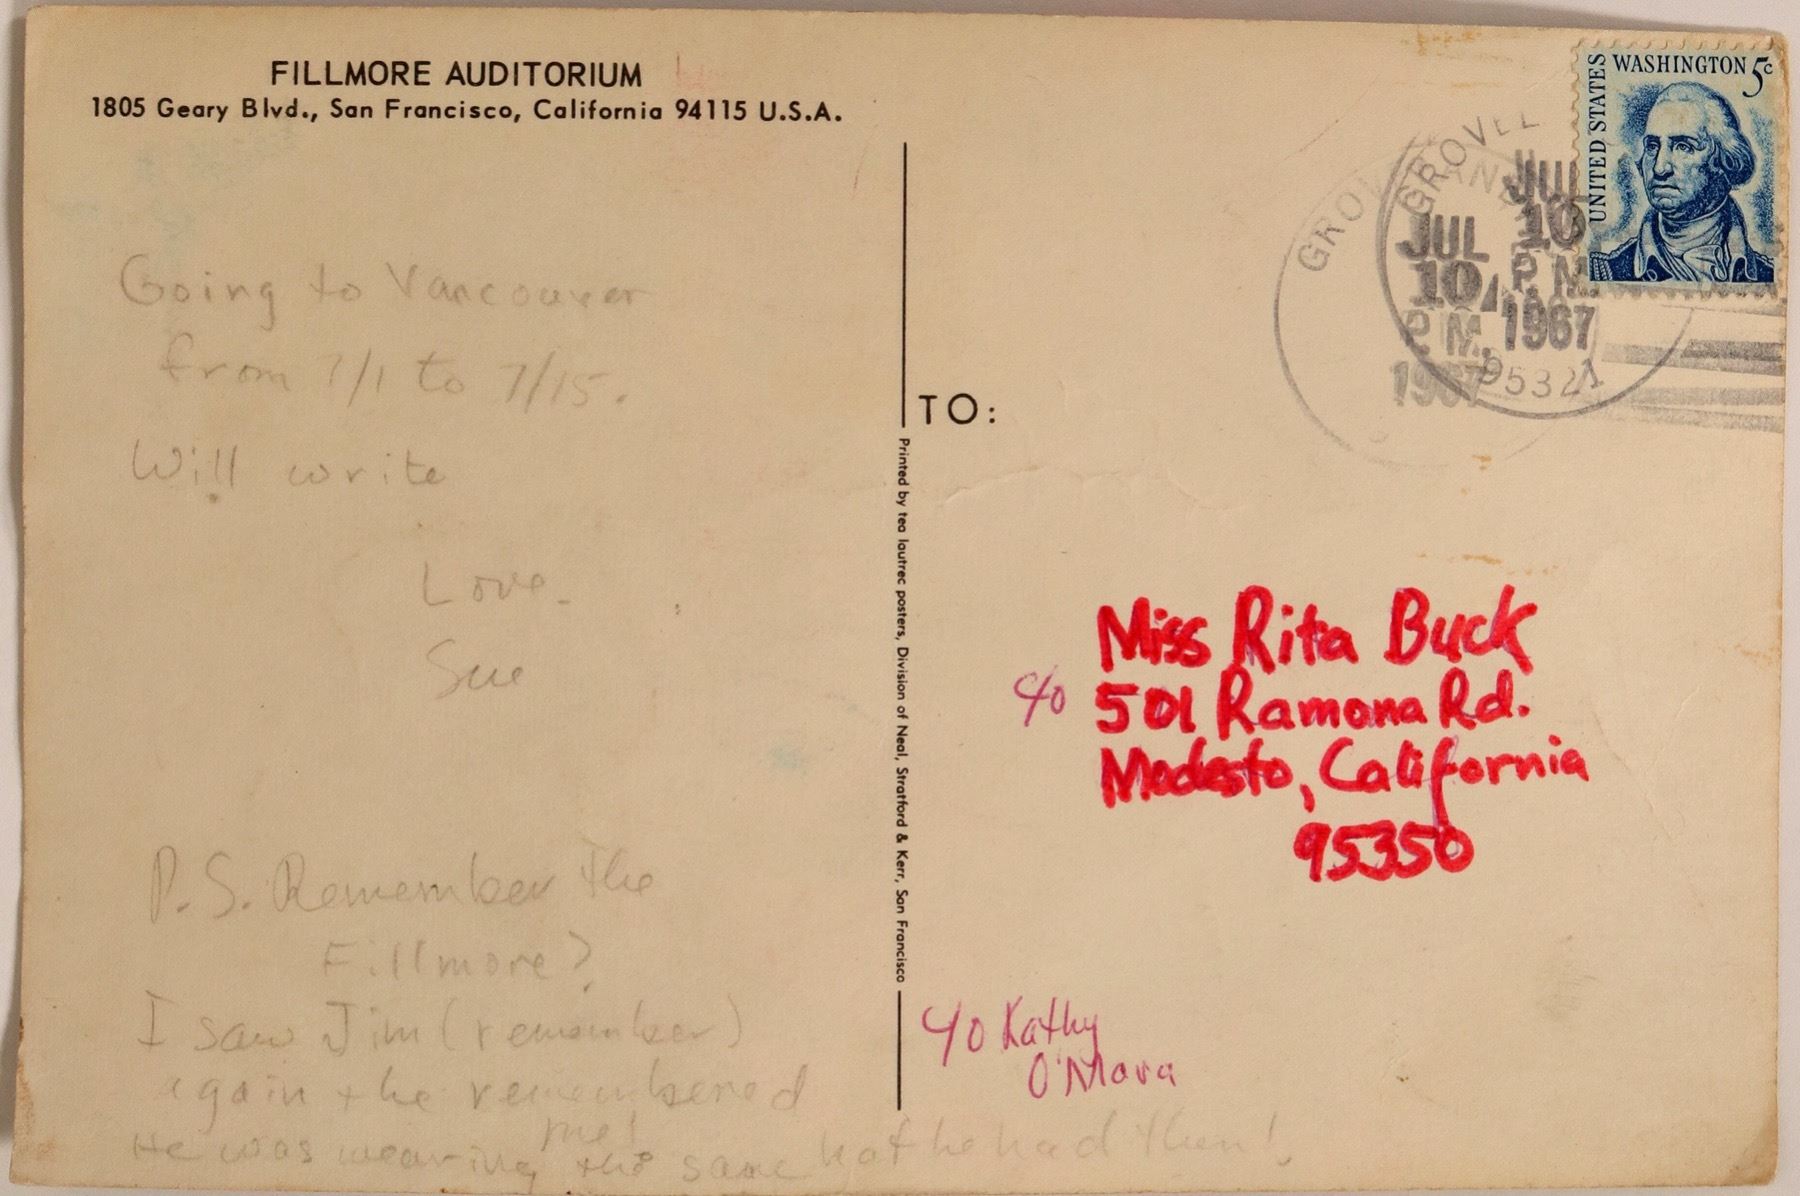 FILLMORE AUDITORIUM
1805 Geary Blvd., San Francisco, California 94115 U.S.A.
Going to Vancouver
from 7/1 to 7/15.
Will write
Love.
Sue
P.S. Remember the
Fillmore?
I saw Jim (remember)
again & he remembered
me!
He was wearing the same hat he had then!
TO:
Printed by tea lautrec posters, Division of Neal, Stratford & Kerr, San Francisco
UNITED STATES
WASHINGTON 5c
GROVEL
JUL
10
P.M.
1967
95321
GRO
JUL
10
P.M.
1967
Miss Rita Buck
c/o 501 Ramona Rd.
Modesto, California
95350
c/o Kathy
O'Mara